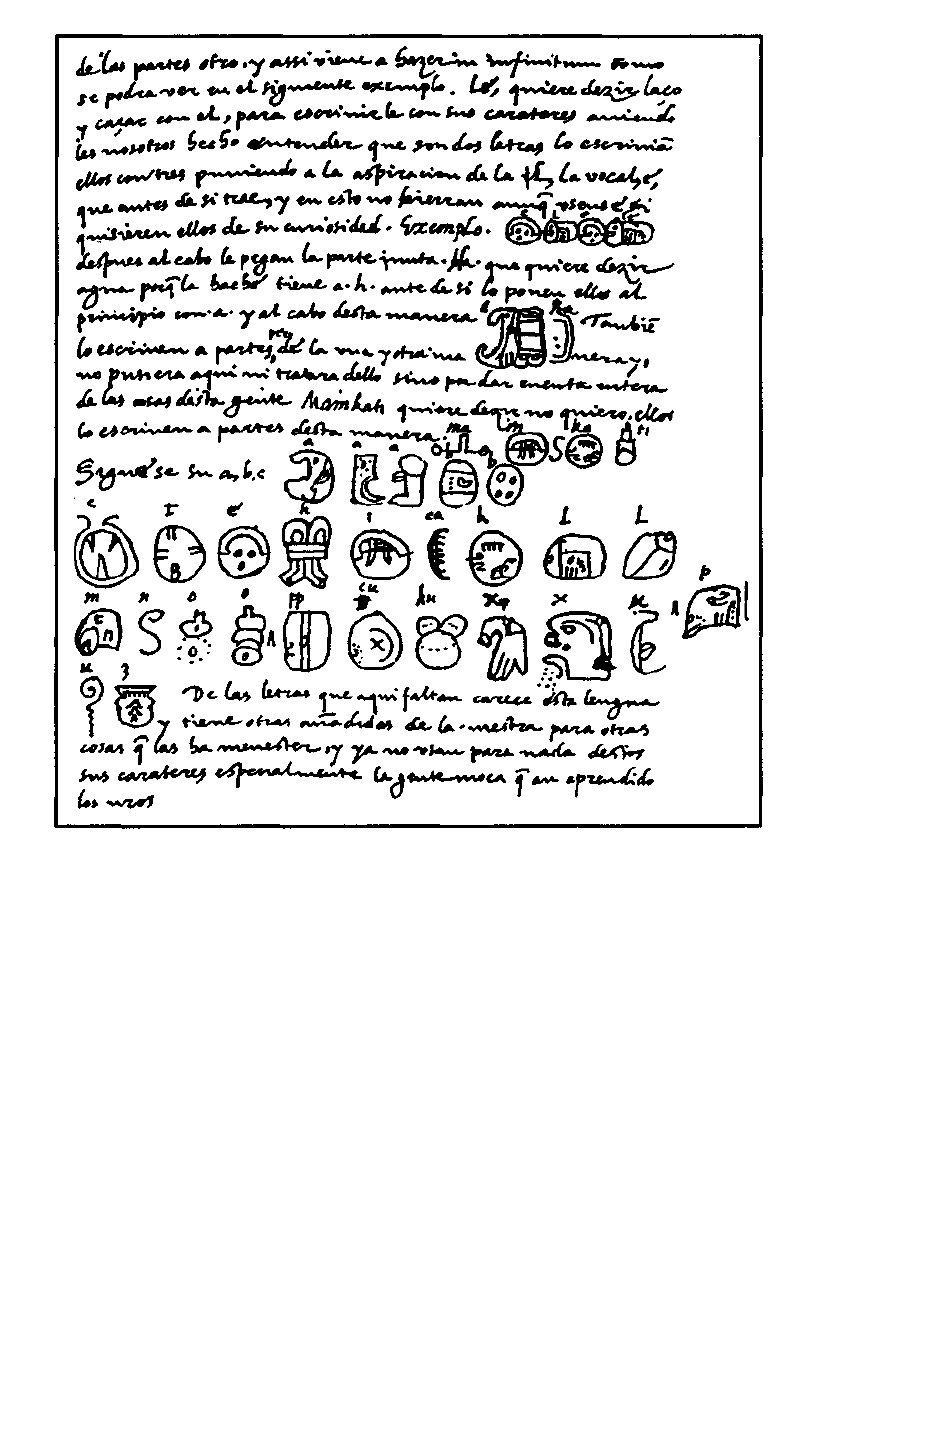 de las partes otro, y assi viene a hazer in infinitum como
se podra ver en el siguiente exemplo. Lé, quiere dezir laço
y caçar con el, para escrivirle con sus carateres aviendo
les nosotros hecho entender que son dos letras lo escriviã
ellos con tres puniendo a la aspiracion de la l, la vocal, é,
que antes de si trae, y en esto no hierran aunq̃ usense si
quisieren ellos de su curiosidad. Exemplo.
despues al cabo le pegan la parte junta. Ha. que quiere dezir
agua porq̃ la haché tiene a. h. ante de si lo ponen ellos al
principio con a. y al cabo desta manera
a Ha Tambiẽ
lo escriven a partes, de la una y otra ma nera y,
pero
no pusiera aqui ni tratara dello sino por dar cuenta entera
de las cosas desta gente Mainkati quiere dezir no quiero, ellos
lo escriven a partes desta manera.
ma i n ka ti
Siguese su a, b, c
a a a b b
c t é h i ca k l l
m n o o pp cu ku x x u p
u z
De las letras que aqui faltan carece esta lengua
y tiene otras añadidas de la nuestra para otras
cosas q̃ las ha menester, y ya no usan para nada destos
sus carateres especialmente la gente moça q̃ an aprendido
los nros